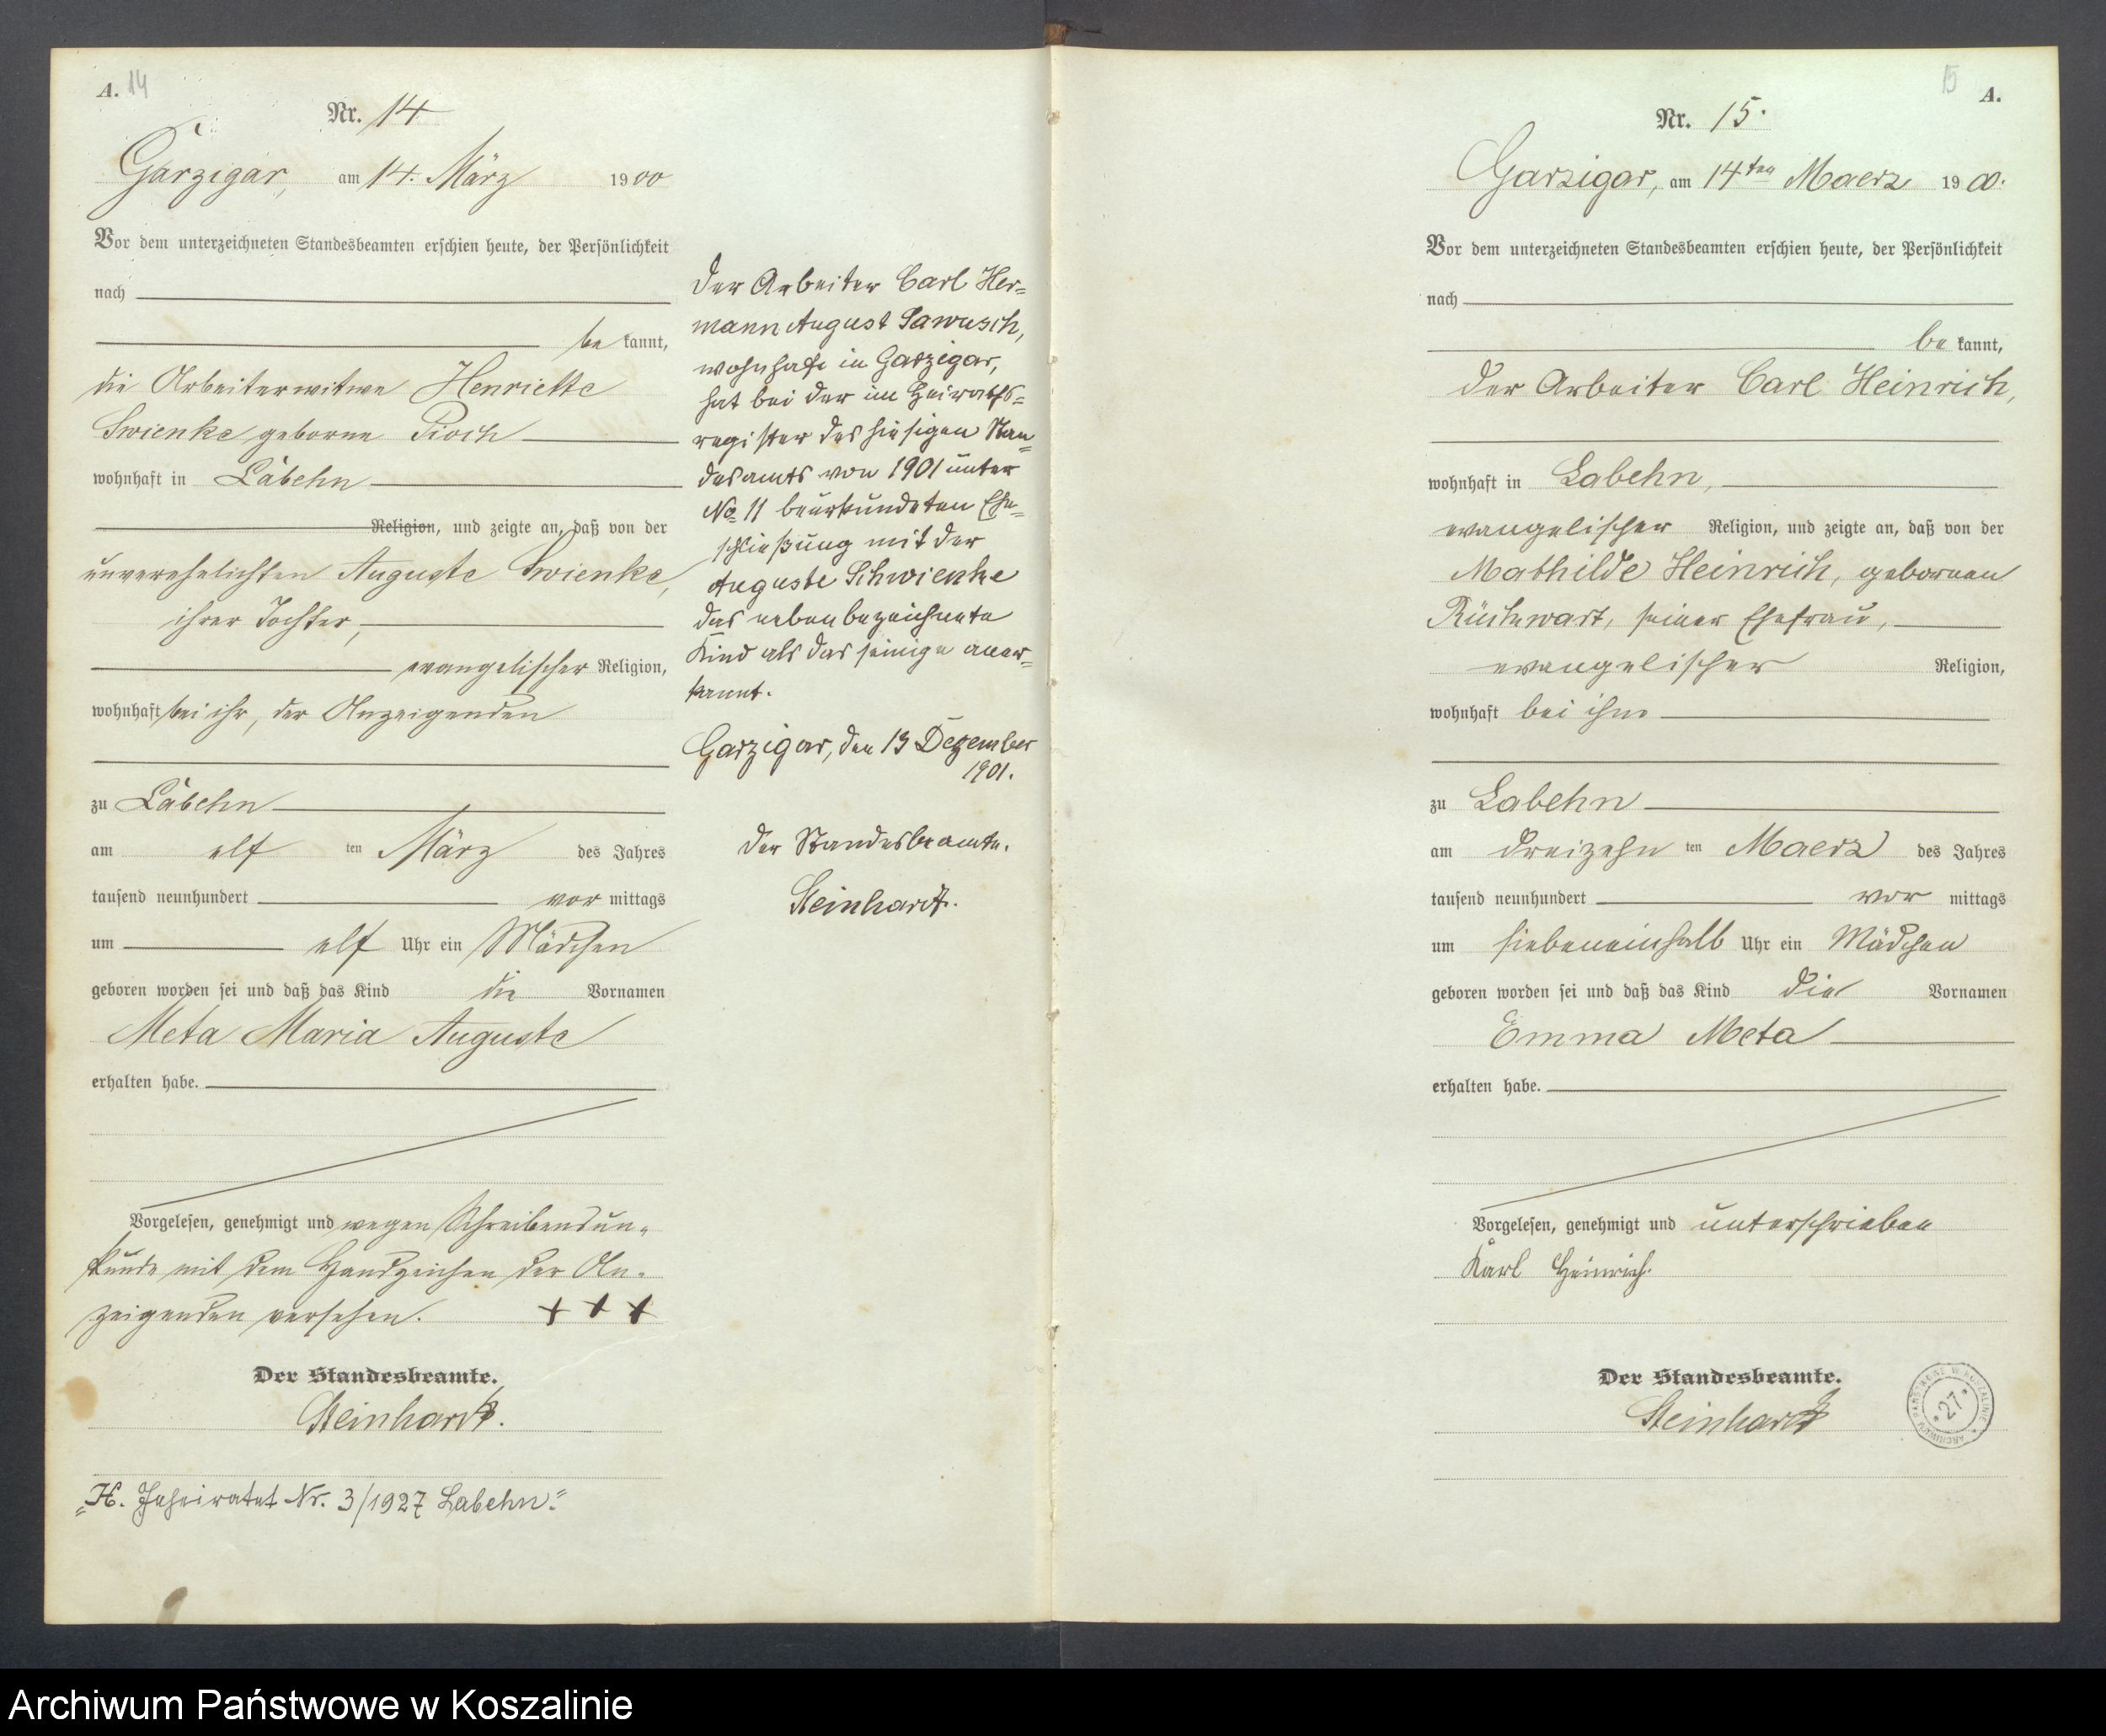 A. 14
Nr. 14
Garzigar, am 14. März 1900
Vor dem unterzeichneten Standesbeamten erschien heute, der Persönlichkeit
nach
be kannt,
die Arbeiterwitwe Henriette
Swienke geborne Pioch
wohnhaft in Labehn
Religion, und zeigte an, daß von der
unverehelichten Auguste Swienke,
ihrer Tochter,
evangelischer Religion,
wohnhaft bei ihr, der Anzeigenden
zu Labehn
am elf ten März des Jahres
tausend neunhundert vor mittags
um elf Uhr ein Mädchen
geboren worden sei und daß das Kind die Vornamen
Meta Maria Auguste
erhalten habe.
Vorgelesen, genehmigt und wegen Schreibensun-
kunde mit dem Handzeichen der An-
zeigenden versehen. + + +
Der Standesbeamte.
Steinhardt.
"H. Geheiratet Nr. 3/1927 Labehn."
Der Arbeiter Carl Her=
mann August Sawusch,
wohnhaft in Garzigar,
hat bei der im Heiraths=
register des hiesigen Stan=
desamts von 1901 unter
No 11 beurkundeten Ehe=
schließung mit der
Auguste Schwienke
das nebenbezeichnete
Kind als das seinige aner=
kannt.
Garzigar, den 13 Dezember
1901.
Der Standesbeamte.
Steinhardt.
15 A.
Nr. 15.
Garzigar, am 14ten Maerz 1900.
Vor dem unterzeichneten Standesbeamten erschien heute, der Persönlichkeit
nach
be kannt,
der Arbeiter Carl Heinrich,
wohnhaft in Labehn,
evangelischer Religion, und zeigte an, daß von der
Mathilde Heinrich, gebornen
Rückwart, seiner Ehefrau,
evangelischer Religion,
wohnhaft bei ihm
zu Labehn
am dreizehn ten Maerz des Jahres
tausend neunhundert vor mittags
um siebeneinhalb Uhr ein Mädchen
geboren worden sei und daß das Kind die Vornamen
Emma Meta
erhalten habe.
Vorgelesen, genehmigt und unterschrieben
Karl Heinrich.
Der Standesbeamte.
Steinhardt
ARCHIWUM PAŃSTWOWE W KOSZALINIE
* 27 *
Archiwum Państwowe w Koszalinie